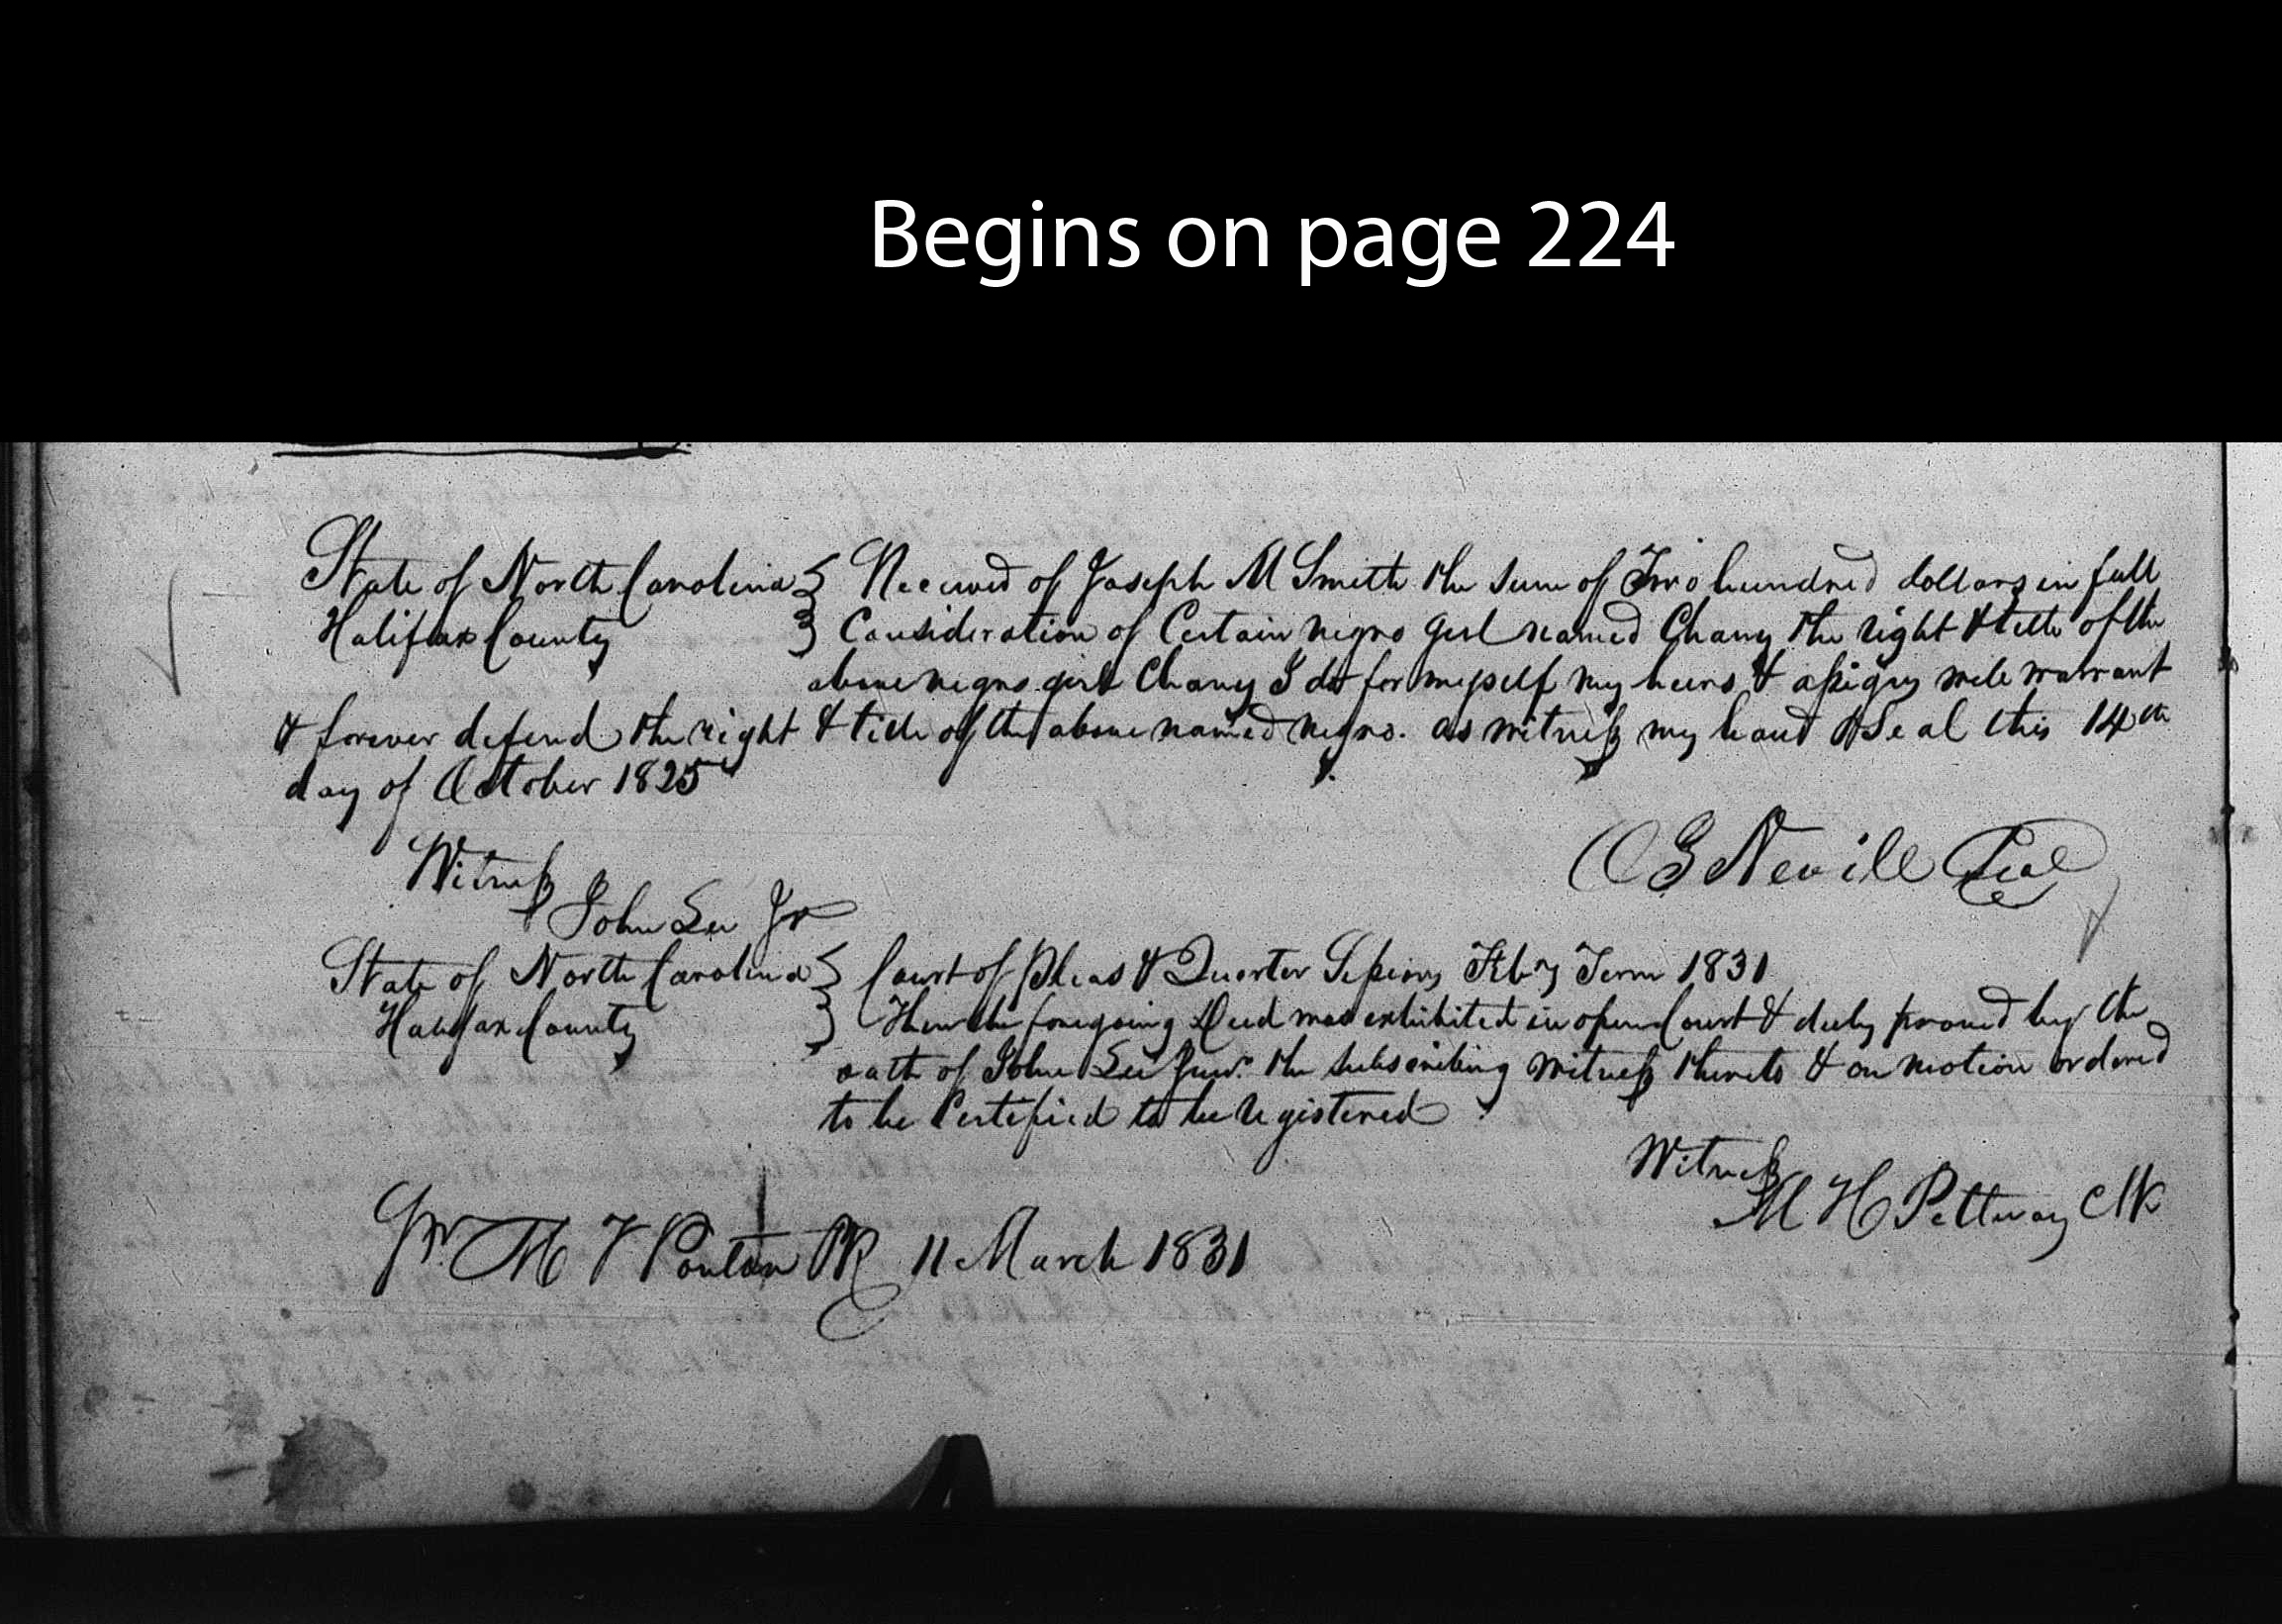 Begins on page 224
State of North Carolina } Received of Joseph M Smith the sum of Two hundred dollars in full
Halifax County } Consideration of Certain negro girl named Chany the right & title of the
above negro girl Chany I do for myself my heirs & assigns will warrant
& forever defend the right & title of the above named negro. as witness my hand & Seal this 14th
day of October 1825
G Nevill Seal
Witness
John Lee Jr
State of North Carolina } Court of Pleas & Quarter Sessions Feby Term 1831
Halifax County } Then the foregoing Deed was exhibited in open Court & duly proved by the
oath of John Lee Junr. the subscribing witness thereto & on motion ordered
to be Certified to be registered
Witness
M H Pettway Clk
M T Ponton PR 11 March 1831